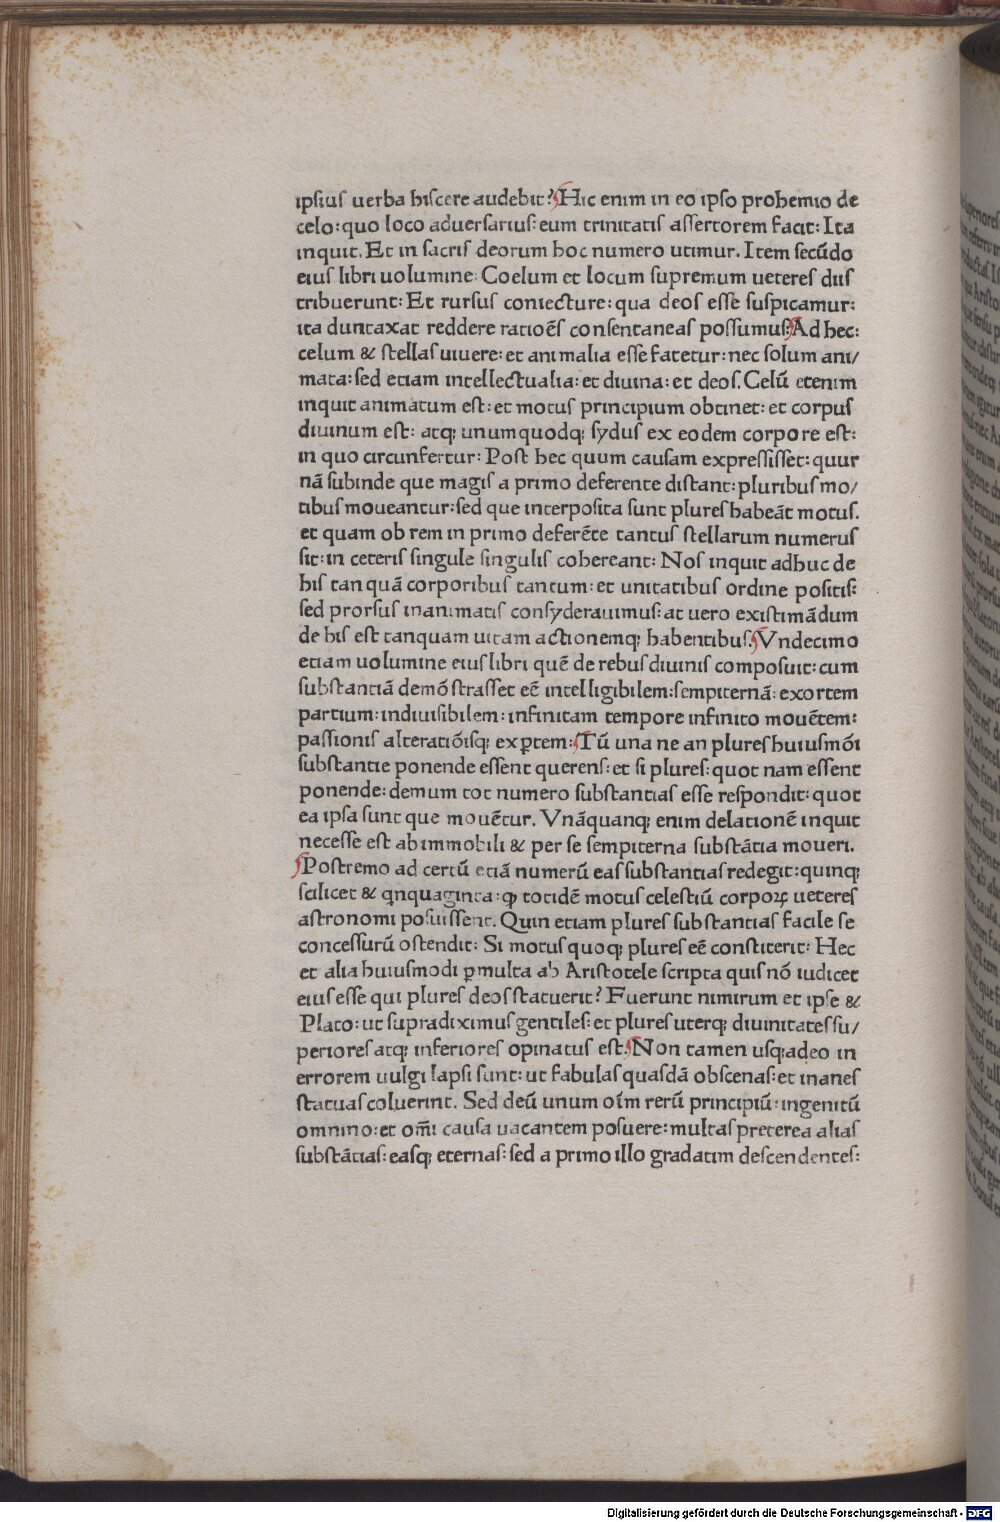 ipsius uerba hiscere audebit? Hic enim in eo ipso prohemio de
celo: quo loco aduersarius: eum trinitatis assertorem facit: Ita
inquit. Et in sacris deorum hoc numero utimur. Item secūdo
eius libri uolumine: Coelum et locum supremum ueteres diis
tribuerunt: Et rursus coniecture: qua deos esse suspicamur:
ita duntaxat reddere ratioēs consentaneas possumus: Ad hec:
celum & stellas uiuere: et animalia esse fatetur: nec solum ani/
mata: sed etiam intellectualia: et diuina: et deos. Celū etenim
inquit animatum est: et motus principium obtinet: et corpus
diuinum est: atq; unumquodq; sydus ex eodem corpore est:
in quo circunfertur: Post hec quum causam expressisset: quur
nā subinde que magis a primo deferente distant: pluribus mo/
tibus moueantur: sed que interposita sunt plures habeāt motus.
et quam ob rem in primo deferēte tantus stellarum numerus
sit: in ceteris singule singulis cohereant: Nos inquit adhuc de
his tanquā corporibus tantum: et unitatibus ordine positis:
sed prorsus inanimatis consyderauimus: at uero existimādum
de his est tanquam uitam actionemq; habentibus. Vndecimo
etiam uolumine eius libri quē de rebus diuinis composuit: cum
substantiā demōstrasset eē intelligibilem: sempiternā: exortem
partium: indiuisibilem: infinitam tempore infinito mouētem:
passionis alteratiōisq; exꝑtem: Tū una ne an plures huiusmōi
substantie ponende essent querens: et si plures: quot nam essent
ponende: demum tot numero substantias esse respondit: quot
ea ipsa sunt que mouētur. Vnāquanq; enim delationē inquit
necesse est ab immobili & per se sempiterna substātia moueri.
Postremo ad certū etiā numerū eas substantias redegit: quinq;
scilicet & qnquaginta: ꝙ totidē motus celestiū corpoꝝ ueteres
astronomi posuissent. Quin etiam plures substantias facile se
concessurū ostendit: Si motus quoq; plures eē constiterit: Hec
et alia huiusmodi ꝑmulta ab Aristotele scripta quis nō iudicet
eius esse qui plures deos statuerit? Fuerunt nimirum et ipse &
Plato: ut supradiximus gentiles: et plures uterq; diuinitates su/
periores atq; inferiores opinatus est. Non tamen usq; adeo in
errorem uulgi lapsi sunt: ut fabulas quasdā obscenas: et inanes
statuas coluerint. Sed deū unum oīm rerū principiū: ingenitū
omnino: et om̄i causa uacantem posuere: multas preterea alias
substātias: easq; eternas: sed a primo illo gradatim descendentes:
Digitalisierung gefördert durch die Deutsche Forschungsgemeinschaft - DFG